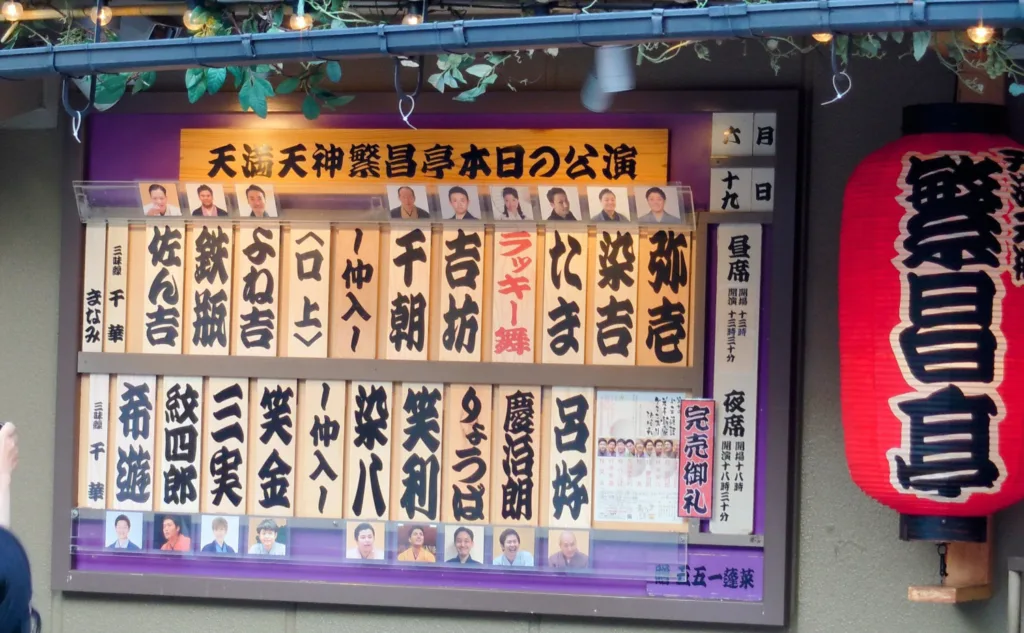 天満天神繁昌亭本日の公演
六月
十九日
昼席
開場 十三時
開演 十三時三十分
弥壱
染吉
たま
ラッキー舞
吉坊
千朝
〜仲入〜
〈口上〉
よね吉
鉄瓶
佐ん吉
三味線 千華
まなみ
夜席
開場十八時
開演十八時三十分
完売御礼
呂好
慶治朗
りょうば
笑利
染八
〜仲入〜
笑金
三実
紋四郎
希遊
三味線 千華
五五一蓬莱
繁昌亭